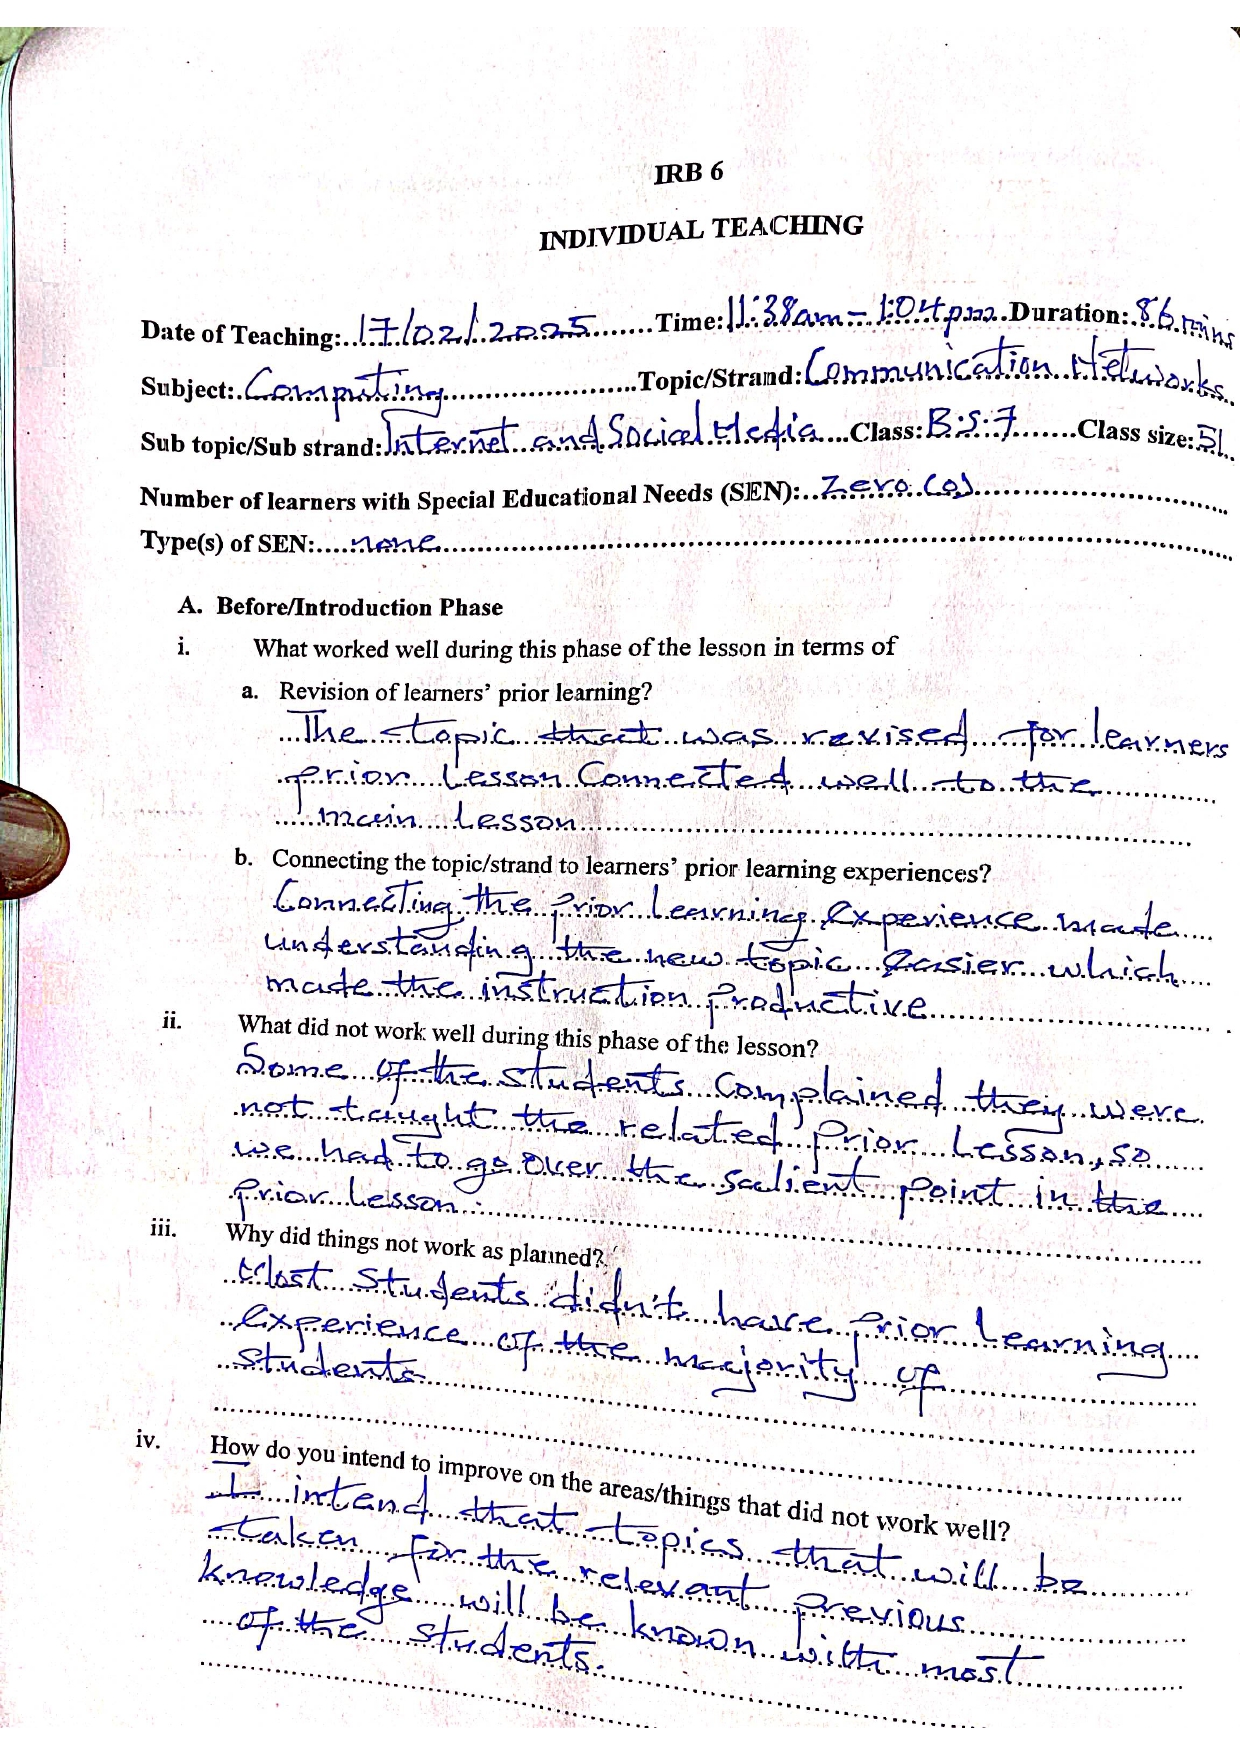 IRB 6
INDIVIDUAL TEACHING
Date of Teaching: 17/02/2025 Time: 11:38am - 1:04pm Duration: 86 mins
Subject: Computing Topic/Strand: Communication Networks
Sub topic/Sub strand: Internet and Social Media Class: B.S.7 Class size: 51
Number of learners with Special Educational Needs (SEN): Zero (0)
Type(s) of SEN: none
A. Before/Introduction Phase
i. What worked well during this phase of the lesson in terms of
a. Revision of learners' prior learning?
The topic that was revised for learners
prior Lesson Connected well to the
main Lesson
b. Connecting the topic/strand to learners' prior learning experiences?
Connecting the prior Learning experience made
understanding the new topic easier which
made the instruction productive
ii. What did not work well during this phase of the lesson?
Some of the students complained they were
not taught the related prior Lesson, so
we had to go over the salient point in the
prior Lesson.
iii. Why did things not work as planned?
Most students didn't have prior Learning
experience of the majority of
students
iv. How do you intend to improve on the areas/things that did not work well?
I intend that topics that will be
taken for the relevant previous
knowledge will be known with most
of the students.